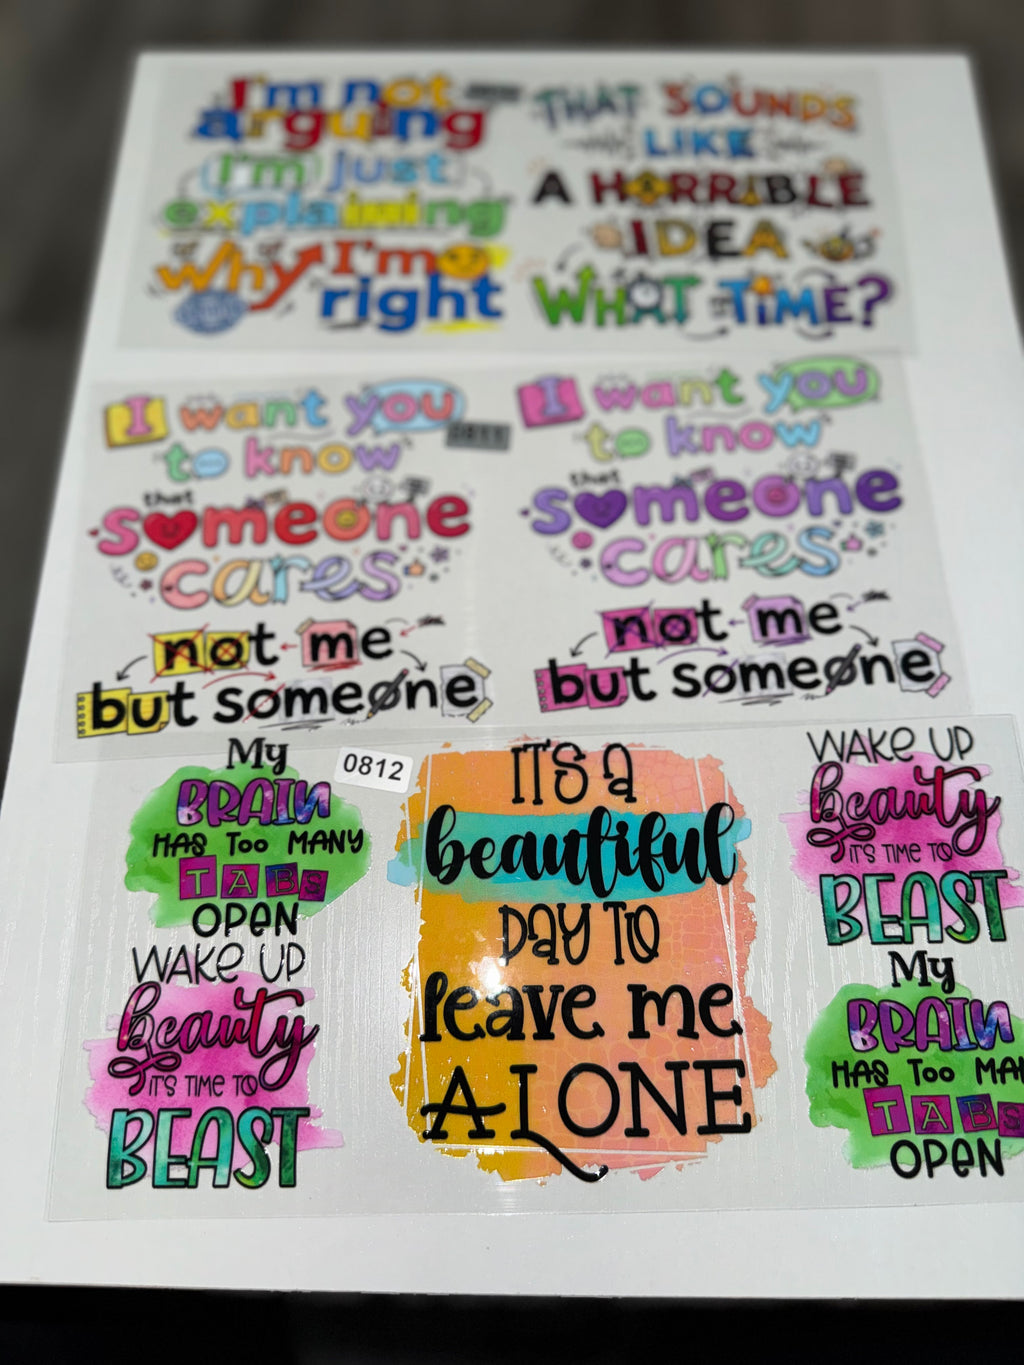 I'm not
arguing
I'm just
explaining
why I'm
right
THAT SOUNDS
LIKE
A HORRIBLE
IDEA
WHAT TIME?
I want you
to know
that
someone
cares
not me
but someone
0811
I want you
to know
that
someone
cares
not me
but someone
My
BRAIN
HAS Too MANY
TABS
OPEN
WAKE UP
Beauty
IT'S TIME TO
BEAST
0812
IT'S a
beautiful
DAY TO
leave me
ALONE
WAKE UP
Beauty
IT'S TIME TO
BEAST
My
BRAIN
HAS Too MAN
TABS
OPEN